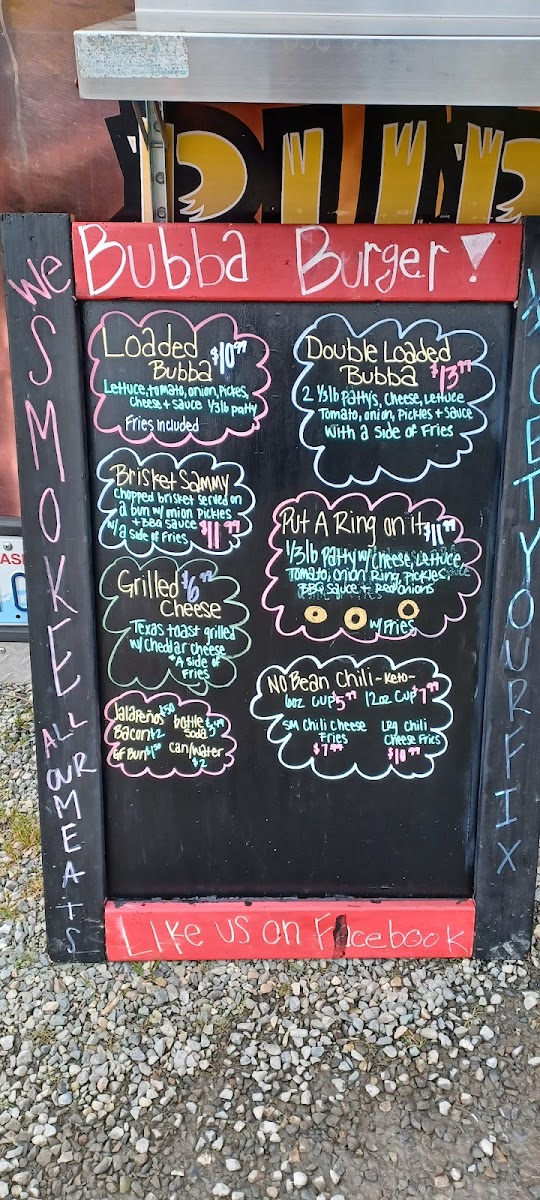 Bubba Burger!
We
SMOKE
ALL
OUR
MEATS
Loaded
Bubba $10.99
Lettuce, tomato, onion, Pickles,
Cheese + sauce 1/3lb patty
Fries included
Double Loaded
Bubba $13.99
2 1/3lb patty's, cheese, Lettuce
Tomato, onion, Pickles + Sauce
with a Side of Fries
Brisket Sammy
Chopped brisket served on
a bun w/ onion Pickles
+ BBQ sauce
w/ a side of Fries $11.99
Put A Ring on it $11.99
1/3lb Patty w/ cheese, Lettuce
Tomato, onion Ring, Pickles
BBQ Sauce + Red onions
w/ Fries
Grilled $6.99
Cheese
Texas toast grilled
w/ Cheddar cheese
*A side of
Fries
No Bean Chili -Keto-
6oz Cup $5.99 12oz Cup $7.99
SM Chili cheese
Fries
$7.99
LRG Chili
Cheese Fries
$10.99
Jalapeños $.50
Bacon $2
GF Bun $1.50
bottle
Soda
can/water
$2
GET YOUR FIX
Like us on Facebook